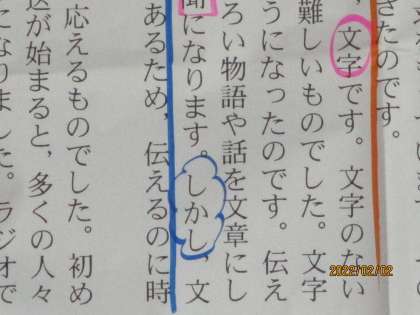 きたのです。
、文字です。文字のない
難しいものでした。文字
うになったのです。伝え
ろい物語や話を文章にし
聞になります。しかし、文
あるため、伝えるのに時
応えるものでした。初め
送が始まると、多くの人々
になりました。ラジオで
2022/02/02